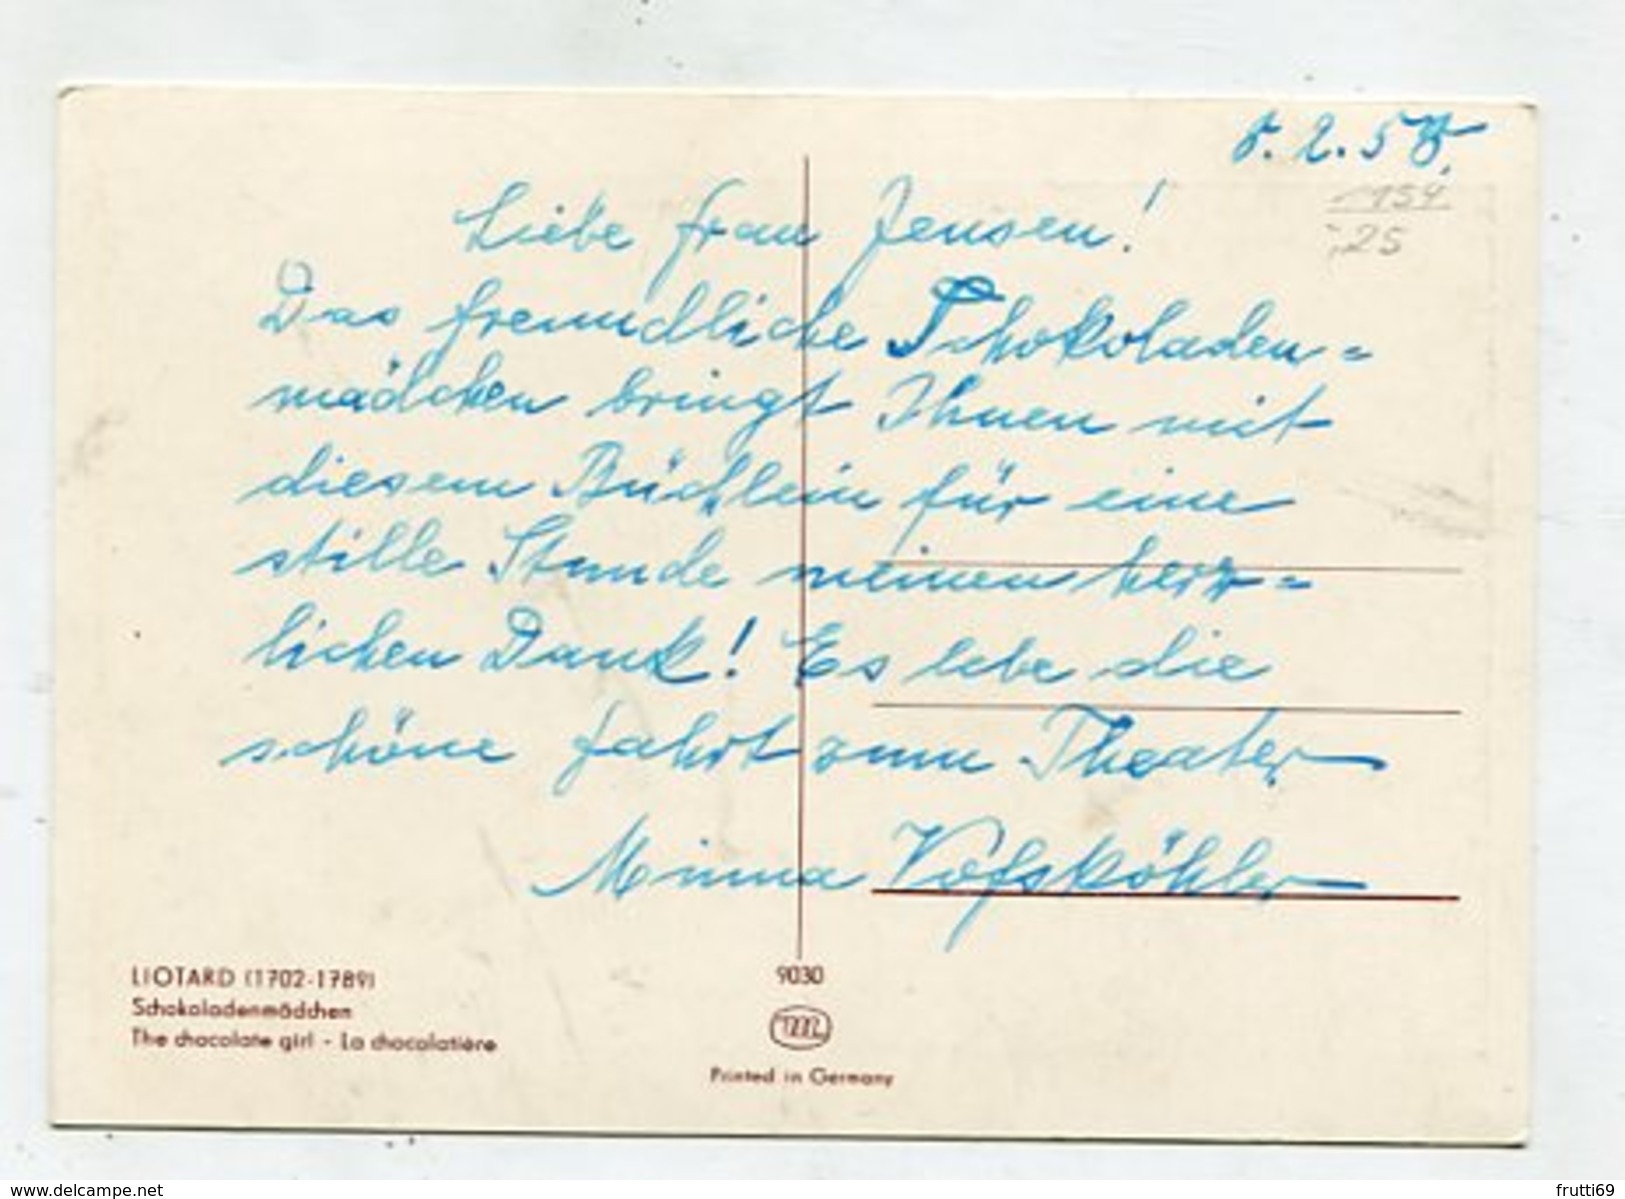 8. 2. 58.
154
25
Liebe Frau Jensen!
Das freundliche Schokoladen=
mädchen bringt Ihnen mit
diesem Büchlein für eine
stille Stunde meinen herz=
lichen Dank! Es lebe die
schöne Fahrt zum Theater
Minna Voßköhler
LIOTARD (1702-1789)
Schokoladenmädchen
The chocolate girl - La chocolatière
9030
m
Printed in Germany
www.delcampe.net
frutti69